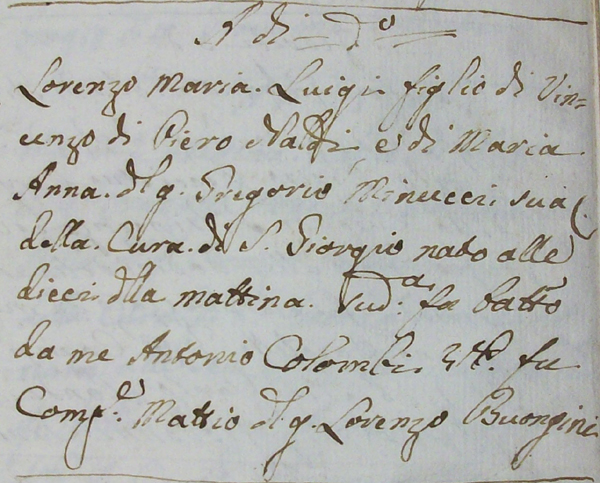 A di = Do
Lorenzo Maria. Luigi figlio di Vin=
cenzo di Piero Naldi e di Maria
Anna. dl q. Gregorio Minucci sua C.
della. Cura. di S. Giorgio nato alle
dieci dlla mattina. sud.a fu batto
da me Antonio Colombi fu
Comp.e Mattio dl q. Lorenzo Buongini